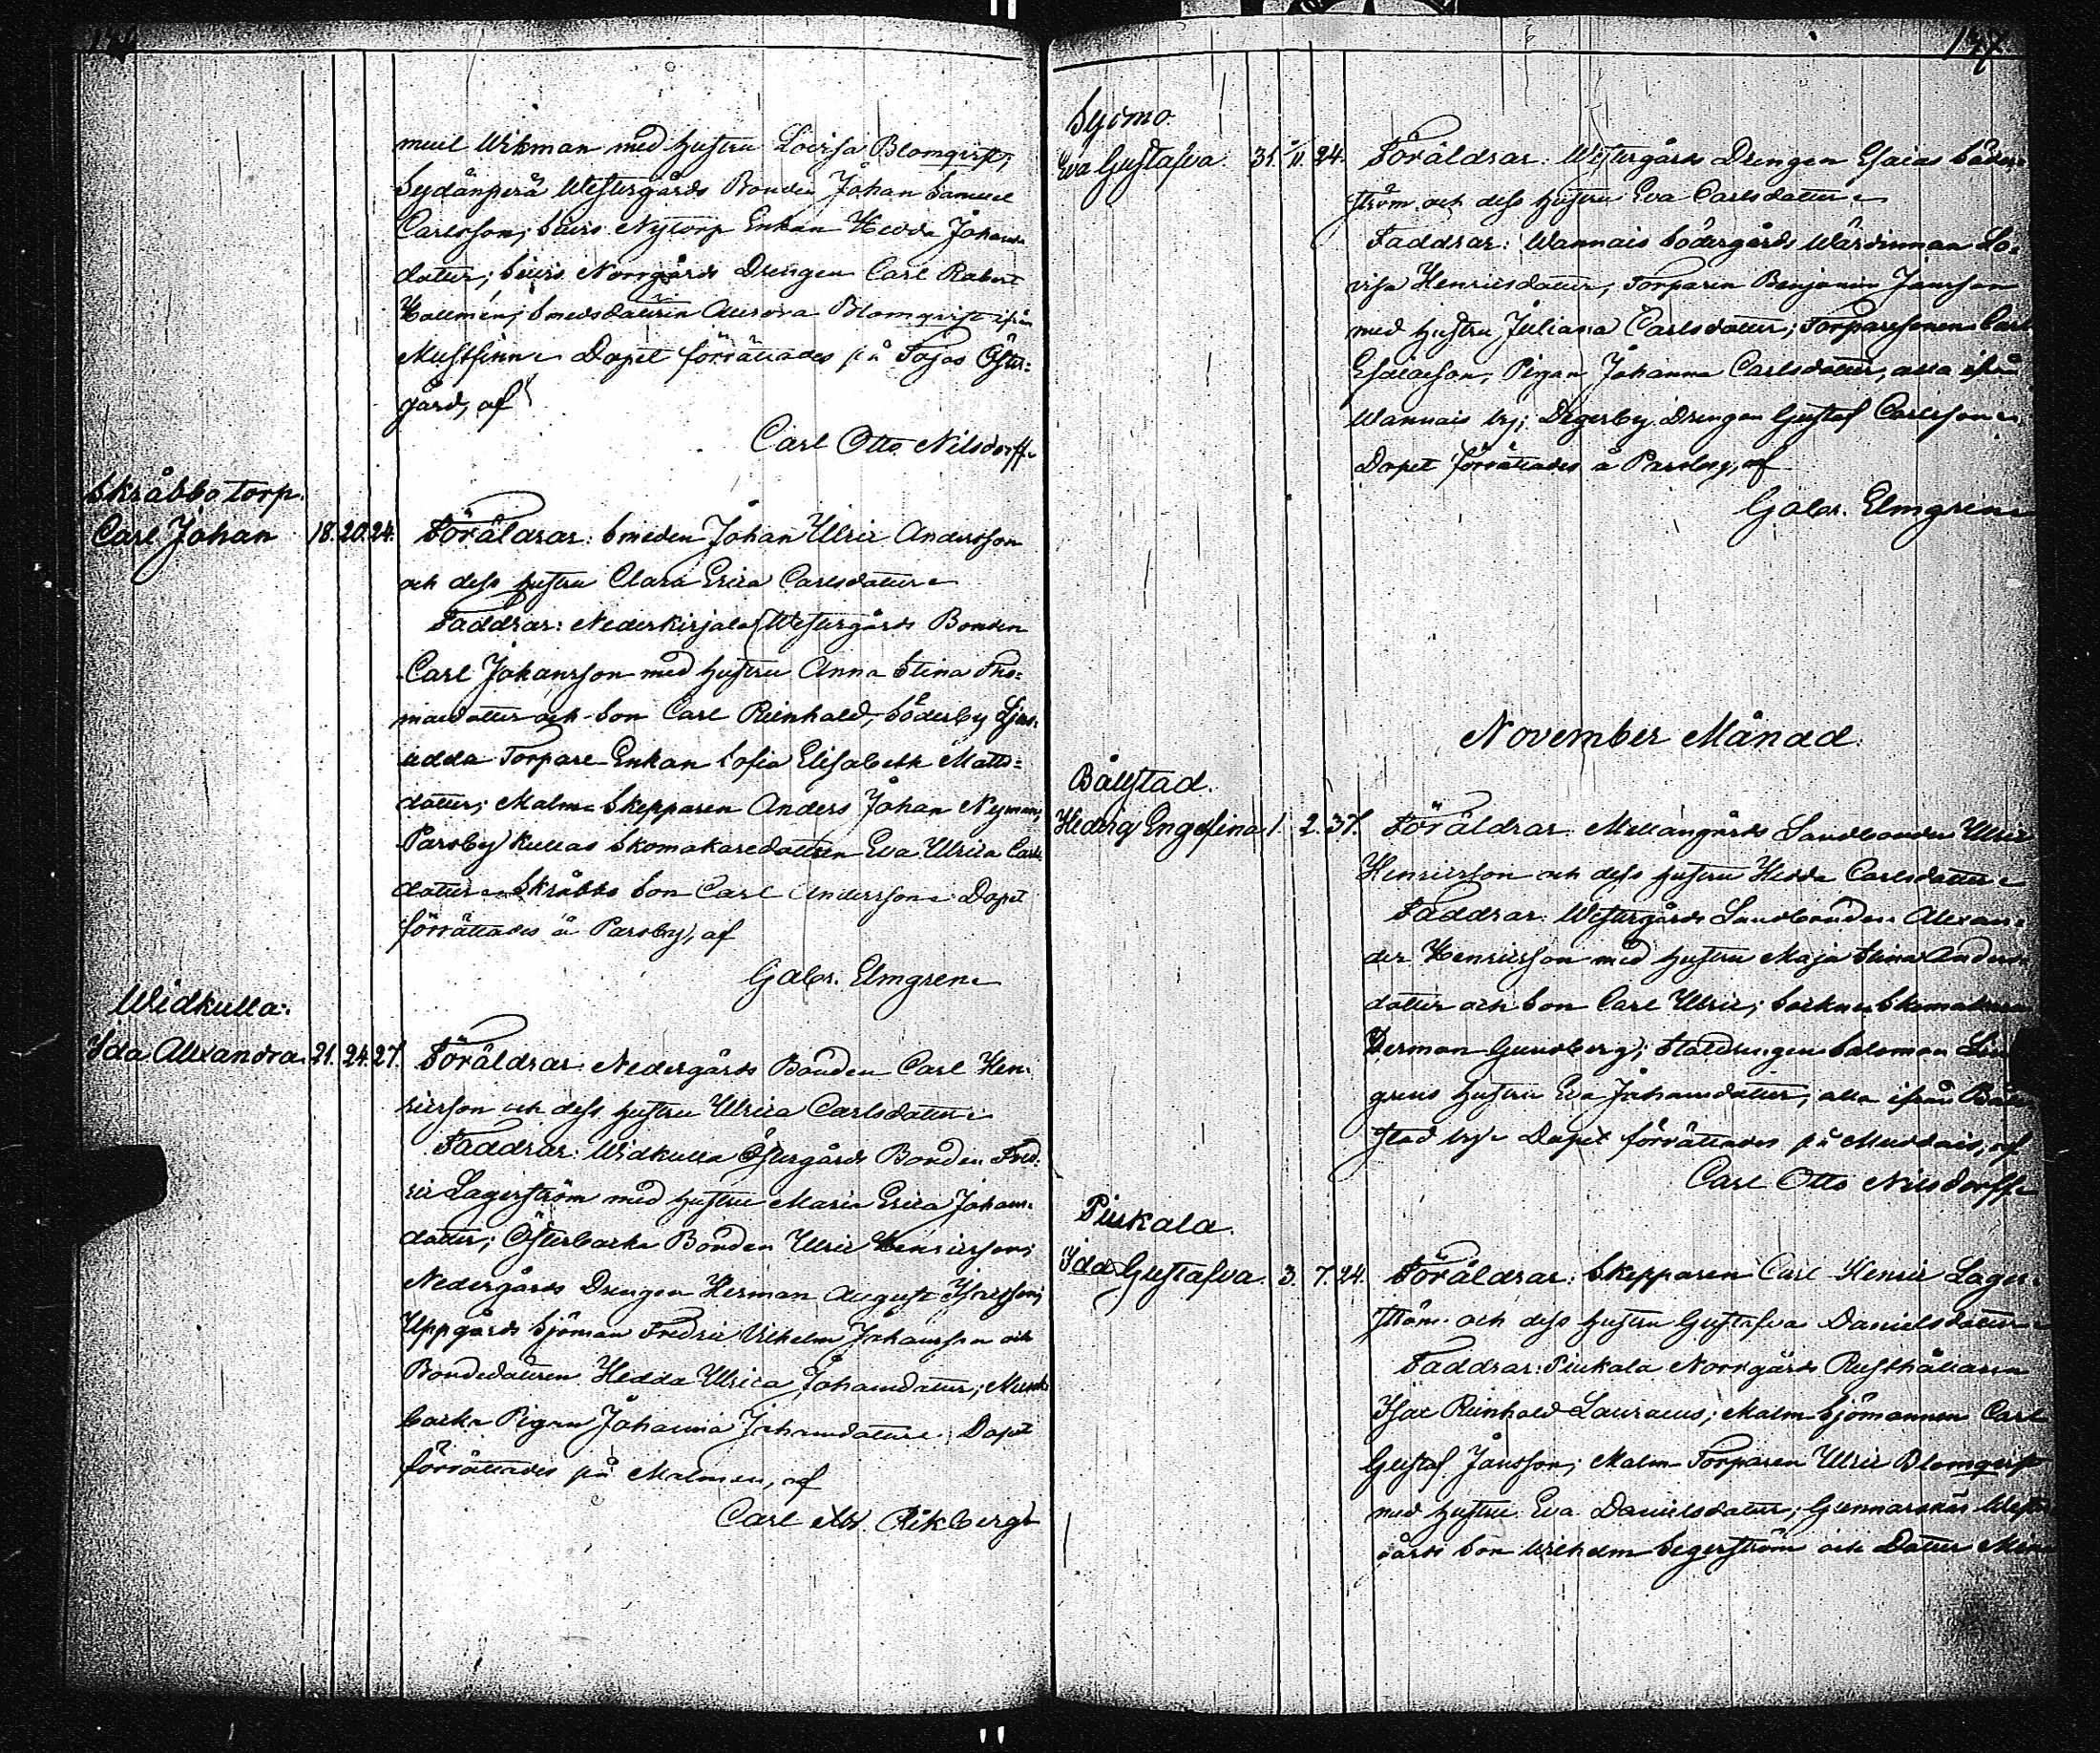 muel Wikman med hustru Lovisa Blomqvist,
Sydänperä Westergårds Bonden Johan Samuel
Carlsson; Nytorp Enkan Hedda Johans
dotter; Norrgårds Drengen Carl Robert
Hallmén; Smedsdottren Aurora Blomqvist ifrån
Mustfinn. Dopet förrättades på Pajas Öster=
gård, af
Carl Otto Nilsdorff.
Skräbbo torp.
Carl Johan 18. 20. 24. Föräldrar: Smeden Johan Ulric Andersson
och dess hustru Clara Erica Carlsdotter.
Faddrar: Nederkirjala Westergårds Bonden
Carl Johansson med hustru Anna Stina Tho=
masdotter och Son Carl Reinhold, Söderby Ljus=
udda Torpare Enkan Sofia Elisabeth Matts=
dotter; Malm Skepparen Anders Johan Nyman,
Parsby Kullas Skomakaredottren Eva Ulrica Carls
dotter. Skräbbo Son Carl Andersson. Dopet
förrättades å Parsby, af
Gabr. Elmgren.
Widkulla.
Ida Alexandra. 21. 24. 27. Föräldrar: Nedergårds Bonden Carl Hen=
ricsson och dess hustru Ulrica Carlsdotter.
Faddrar: Widkulla Östergårds Bonden Fred=
ric Lagerström med hustru Maria Erica Johans=
dotter; Österbacka Bonden Ulric Henricsson;
Nedergårds Drengen Herman August Isacsson;
Uppgårds Sjöman Fredric Wilhelm Johansson och
Bondedottren Hedda Ulrica Johansdotter; Munk
backa Pigan Johanna Johansdotter. Dopet
förrättades på Malmen, af
Carl Rikberg
147
Syömo.
Eva Gustafva. 31. 24. Föräldrar: Westergårds Drengen Esaias Söder=
ström och dess hustru Eva Carlsdotter.
Faddrar: Wannais Södergårds Wärdinnan Lo=
visa Henricsdotter, Torparen Benjamin Jansson
med hustru Juliana Carlsdotter; Torparesonen Carl
Esaiasson, Pigan Johanna Carlsdotter, alla ifrån
Wannais by; Degerby Drengen Gustaf Carlsson.
Dopet förrättades å Parsby, af
Gabr. Elmgren.
November Månad.
Bålstad.
Hedvig Engelina. 1. 2. 37. Föräldrar: Mellangårds Landbonden Ulric
Henricsson och dess hustru Hedda Carlsdotter.
Faddrar: Westergårds Landbonden Alexan=
der Henricsson med hustru Maja Stina Anders
dotter och Son Carl Ulric; Sockne Skomakaren
Herman Gundberg; Stalldrengen Salomon
grens hustru Eva Johansdotter, alla ifrån Bål
stad by. Dopet förrättades på Muddais, af
Carl Otto Nilsdorff.
Piukala.
Ida Gustafva. 3. 7. 24. Föräldrar: Skepparen Carl Henric Lager=
ström och dess hustru Gustafva Danielsdotter.
Faddrar: Piukala Norrgårds Rusthållaren
Isac Reinhold Lauraeus; Malm Sjömannen Carl
Gustaf Jansson; Malm Torparen Ulric Blomqvist
med hustru Eva Danielsdotter; Gunnarsnäs West
gårds Son Wilhelm Segerström och Dotter